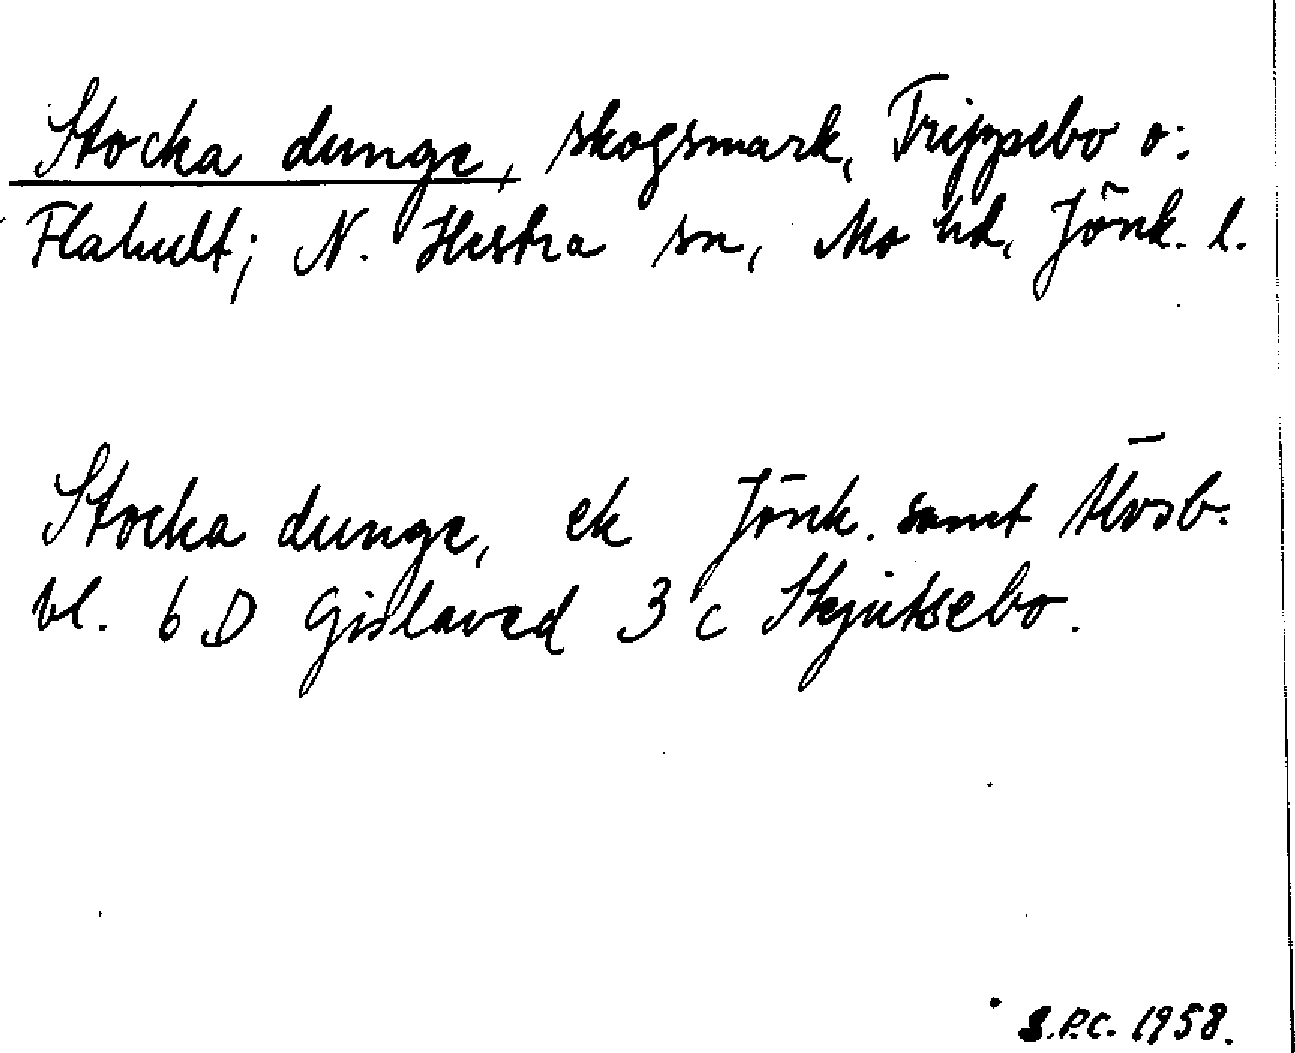 Stocka dunge, skogsmark, Trippsebo o.
Flahult; N. Hestra sn, Mo hd, Jönk. l.
Stocka dunge, ek Jönk. samt Älvsb.
bl. 6 D Gislaved 3 c Skjutsebo.
S.P.C. 1958.